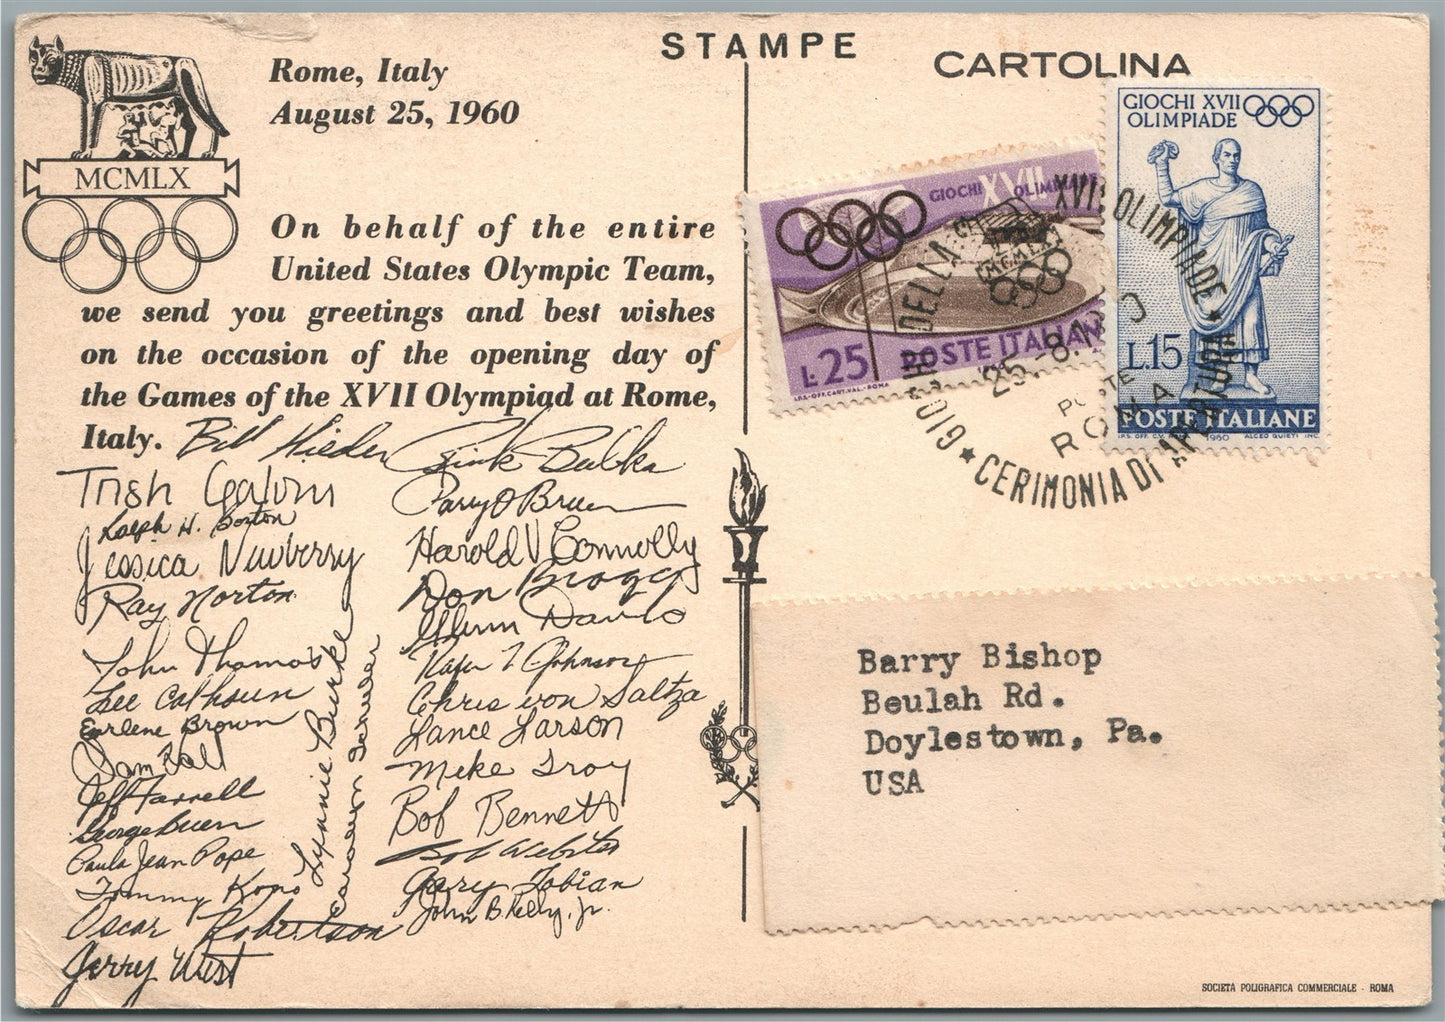 STAMPE
CARTOLINA
Rome, Italy
August 25, 1960
MCMLX
On behalf of the entire
United States Olympic Team,
we send you greetings and best wishes
on the occasion of the opening day of
the Games of the XVII Olympiad at Rome,
Italy.
Parry O'Brien
Trish Galvin
Ralph H. Boston
Jessica Newberry
Ray Norton
John Thomas
Lee Calhoun
Earlene Brown
Sam Hall
Jeff Farrell
George Breen
Paula Jean Pope
Tommy Kono
Oscar Robertson
Jerry West
Lynnie Burke
Harold V Connolly
Don Bragg
Glenn Davis
Rafer L Johnson
Chris von Saltza
Lance Larson
Mike Troy
Bob Bennett
Bob Webster
Gary Tobian
John B. Kelly, Jr.
GIOCHI XVII OLIMPIADE
L.25
POSTE ITALIANE
I.P.S.-OFF.CART.VAL.-ROMA
GIOCHI XVII
OLIMPIADE
L.15
POSTE ITALIANE
I.P.S. OFF. C.V. 1960 ALCEO QUIETI INC.
GIOCHI DELLA XVII OLIMPIADE
CERIMONIA DI APERTURA
MCMLX
25-8.1960
POSTE
ROMA
Barry Bishop
Beulah Rd.
Doylestown, Pa.
USA
SOCIETÀ POLIGRAFICA COMMERCIALE - ROMA